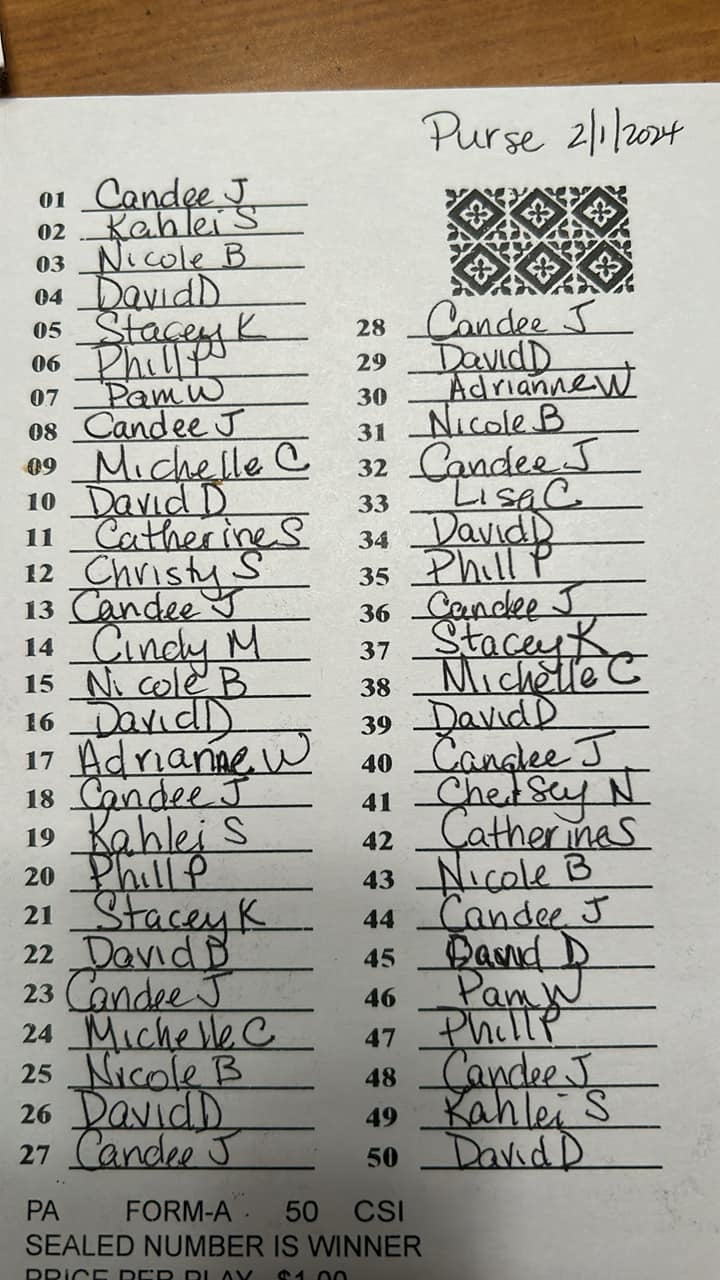 Purse 2/1/2024
01 Candee J
02 Kahlei S
03 Nicole B
04 David D
05 Stacey K
06 Phill P
07 Pam W
08 Candee J
09 Michelle C
10 David D
11 Catherine S
12 Christy S
13 Candee J
14 Cindy M
15 Nicole B
16 David D
17 Adrianne W
18 Candee J
19 Kahlei S
20 Phill P
21 Stacey K
22 David D
23 Candee J
24 Michelle C
25 Nicole B
26 David D
27 Candee J
28 Candee J
29 David D
30 Adrianne W
31 Nicole B
32 Candee J
33 Lisa C
34 David D
35 Phill P
36 Candee J
37 Stacey K
38 Michelle C
39 David D
40 Candee J
41 Chelsey N
42 Catherine S
43 Nicole B
44 Candee J
45 David D
46 Pam W
47 Phill P
48 Candee J
49 Kahlei S
50 David D
PA FORM-A 50 CSI
SEALED NUMBER IS WINNER
PRICE PER PLAY $1.00